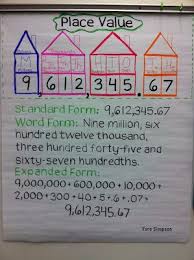 Place Value
M H T Th H T O
9,612,345.67
Standard Form: 9,612,345.67
Word Form: Nine million, six
hundred twelve thousand,
three hundred forty-five and
sixty-seven hundredths.
Expanded Form:
9,000,000 + 600,000 + 10,000 +
2,000 + 300 + 40 + 5 + .6 + .07
9,612,345.67
Tara Simpson